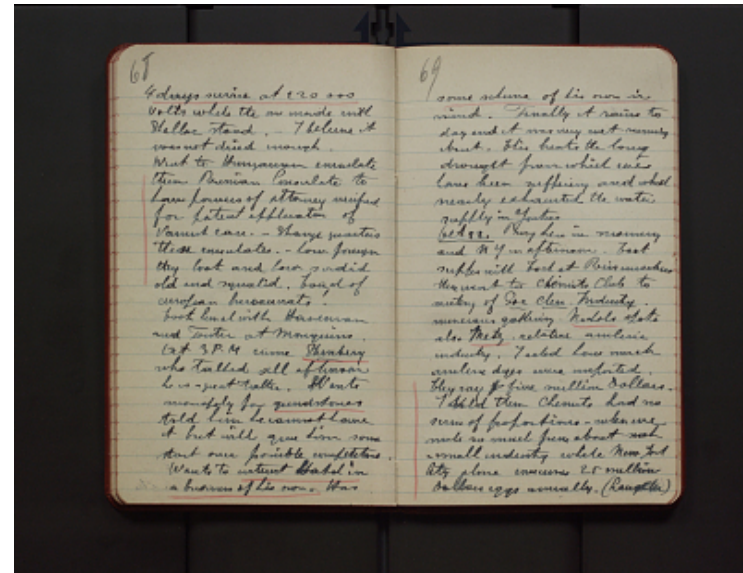 68
4 days service at 220 000
volts while the one made with
Shellac stand. - I believe it
was not dried enough.
Went to Hungarian consulate
then Russian Consulate to
have powers of attorney verified
for patent application of
case. - Strange quarters
these consulates. - how foreign
they look and how sordid
old and squalid.
european bureaucrats!
Took lunch with
and at
At 3 P.M came
who talked all afternoon
he is great talker. Wants
monopoly for grindstones
told him he cannot have
it but will give him some
start over possible competitors.
Wants to interest in
a business of his own. Has
69
some scheme of his own in
mind. Finally it rains to
day and it was very wet
This breaks the long
drought from which we
have been suffering and which
nearly exhausted the water
supply in Yonkers
Oct 22. here in morning
and N Y in afternoon. Took
supper with at
then went to Chemists Club to
meeting of Soc Chem Industry.
numerous gathering. spoke
also Metz, relative aniline
industry. I asked how much
aniline dyes were imported.
They say five million Dollars.
I told them Chemists had no
sense of proportions - when we
make so much fuss about
small industry while New York
City alone consumes 25 million
Dollars eggs annually. (Laughter)